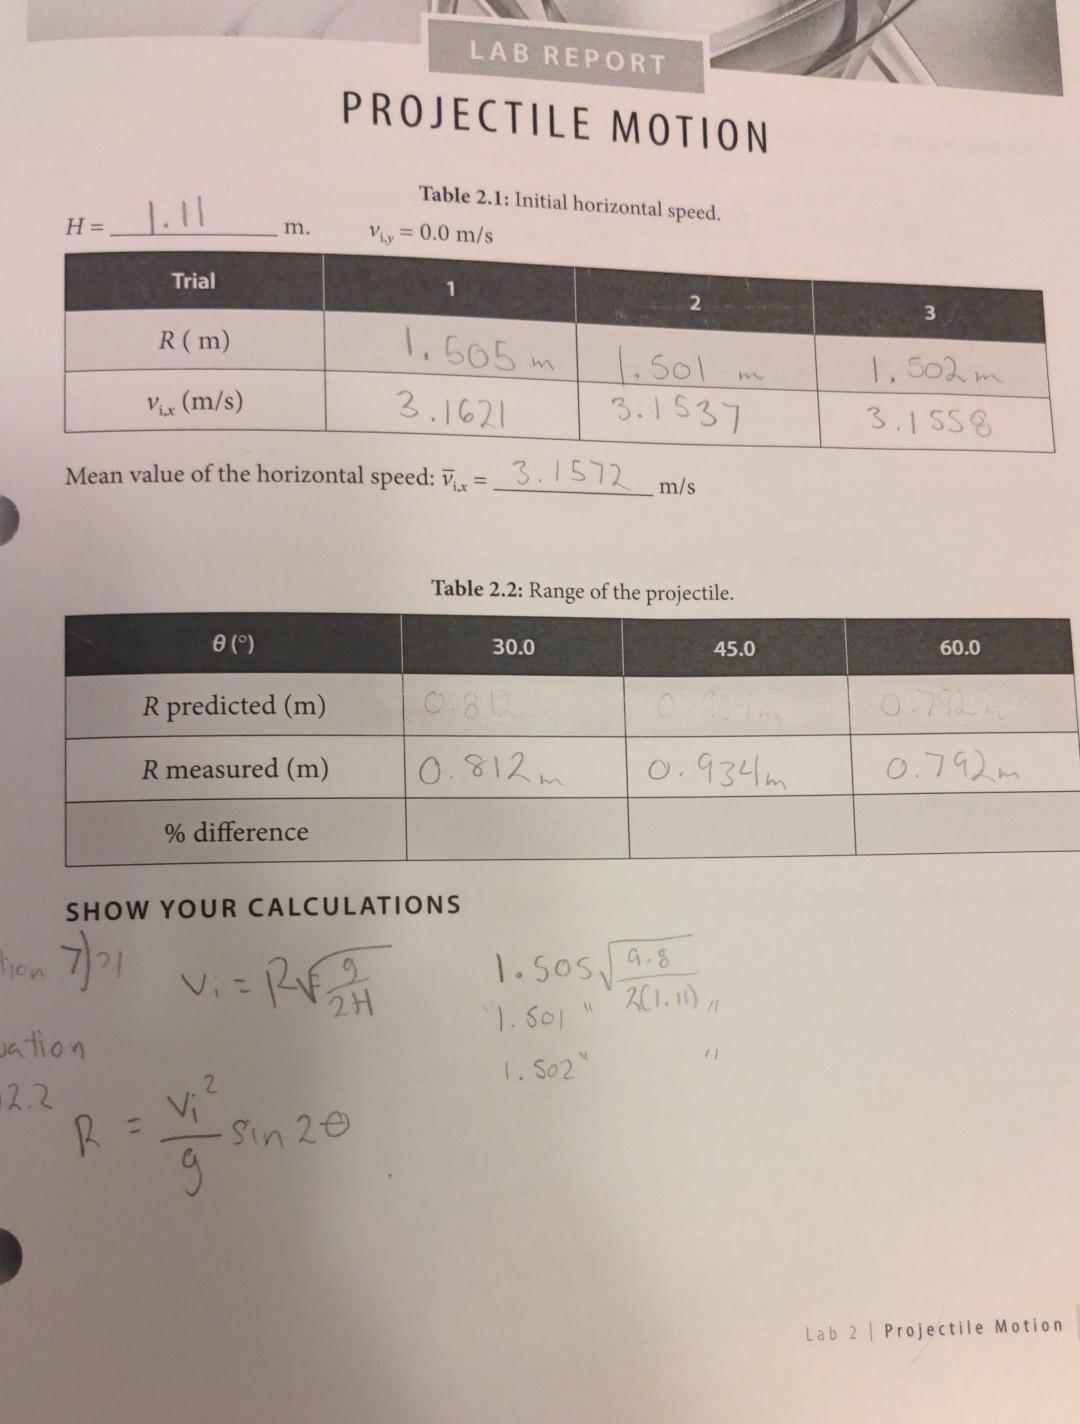 LAB REPORT
PROJECTILE MOTION
Table 2.1: Initial horizontal speed.
H = 1.11 m. v i,y = 0.0 m/s
Trial 1 2 3
R ( m) 1.505 m 1.501 m 1.502 m
v i,x (m/s) 3.1621 3.1537 3.1558
Mean value of the horizontal speed: v̄ i,x = 3.1572 m/s
Table 2.2: Range of the projectile.
θ (°) 30.0 45.0 60.0
R predicted (m) 0.812 0.934m 0.792m
R measured (m) 0.812m 0.934m 0.792m
% difference
SHOW YOUR CALCULATIONS
tion
Vi = R√g/2H 1.505√9.8/2(1.11)
"1.501 " "
1.502" "
uation
2.2
R = Vi²/g sin 2θ
Lab 2 | Projectile Motion